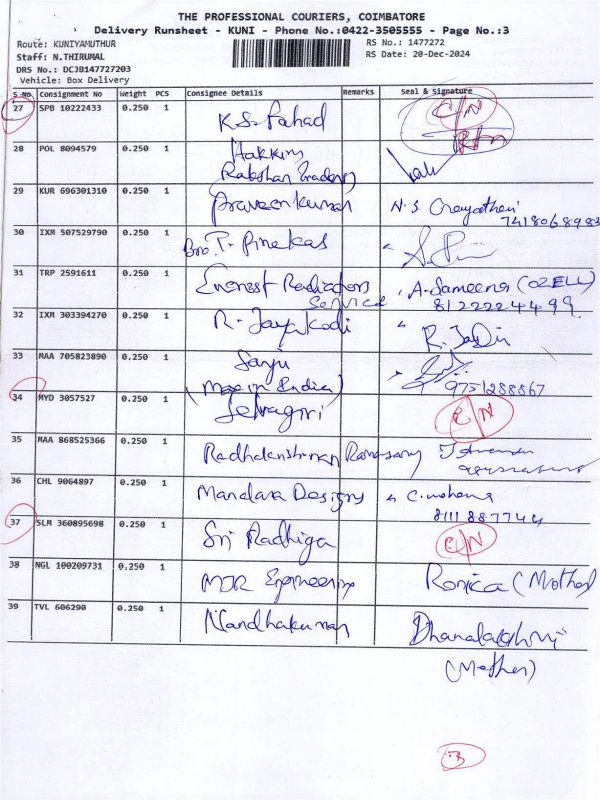 THE PROFESSIONAL COURIERS, COIMBATORE
Delivery Runsheet - KUNI - Phone No.:0422-3505555 - Page No.:3
Route: KUNIYAMUTHUR RS No.: 1477272
Staff: N.THIRUMAL RS Date: 20-Dec-2024
DRS No.: DCJB147727203
Vehicle: Box Delivery
S No Consignment No Weight PCS Consignee Details Remarks Seal & Signature
27 SPB 10222433 0.250 1 K.S. Fahad C/N
28 POL 8094579 0.250 1 Hakkim
Rakshan Traders
29 KUR 696301310 0.250 1 Praveenkumar N.S
7418068983
30 IXM 507529790 0.250 1 Bro. T. Pinekas
31 TRP 2591611 0.250 1 Everest Radiators A. Sameena (OZELL)
Service 8122224499
32 IXM 303394270 0.250 1 R. Jayakodi
33 MAA 705823890 0.250 1 Sanju
(Made in India) 9751288867
34 MYD 3057527 0.250 1 C/N
35 MAA 868525366 0.250 1 Ramasamy
36 CHL 9064897 0.250 1 Mandara Designs C. mohana
8111887744
37 SLM 360895698 0.250 1 Sri Radhiga C/N
38 NGL 100209731 0.250 1 MJR Engineering Ronica (Mother)
39 TVL 606290 0.250 1 Nandhakumar Dhanalakshmi
(Mother)
3